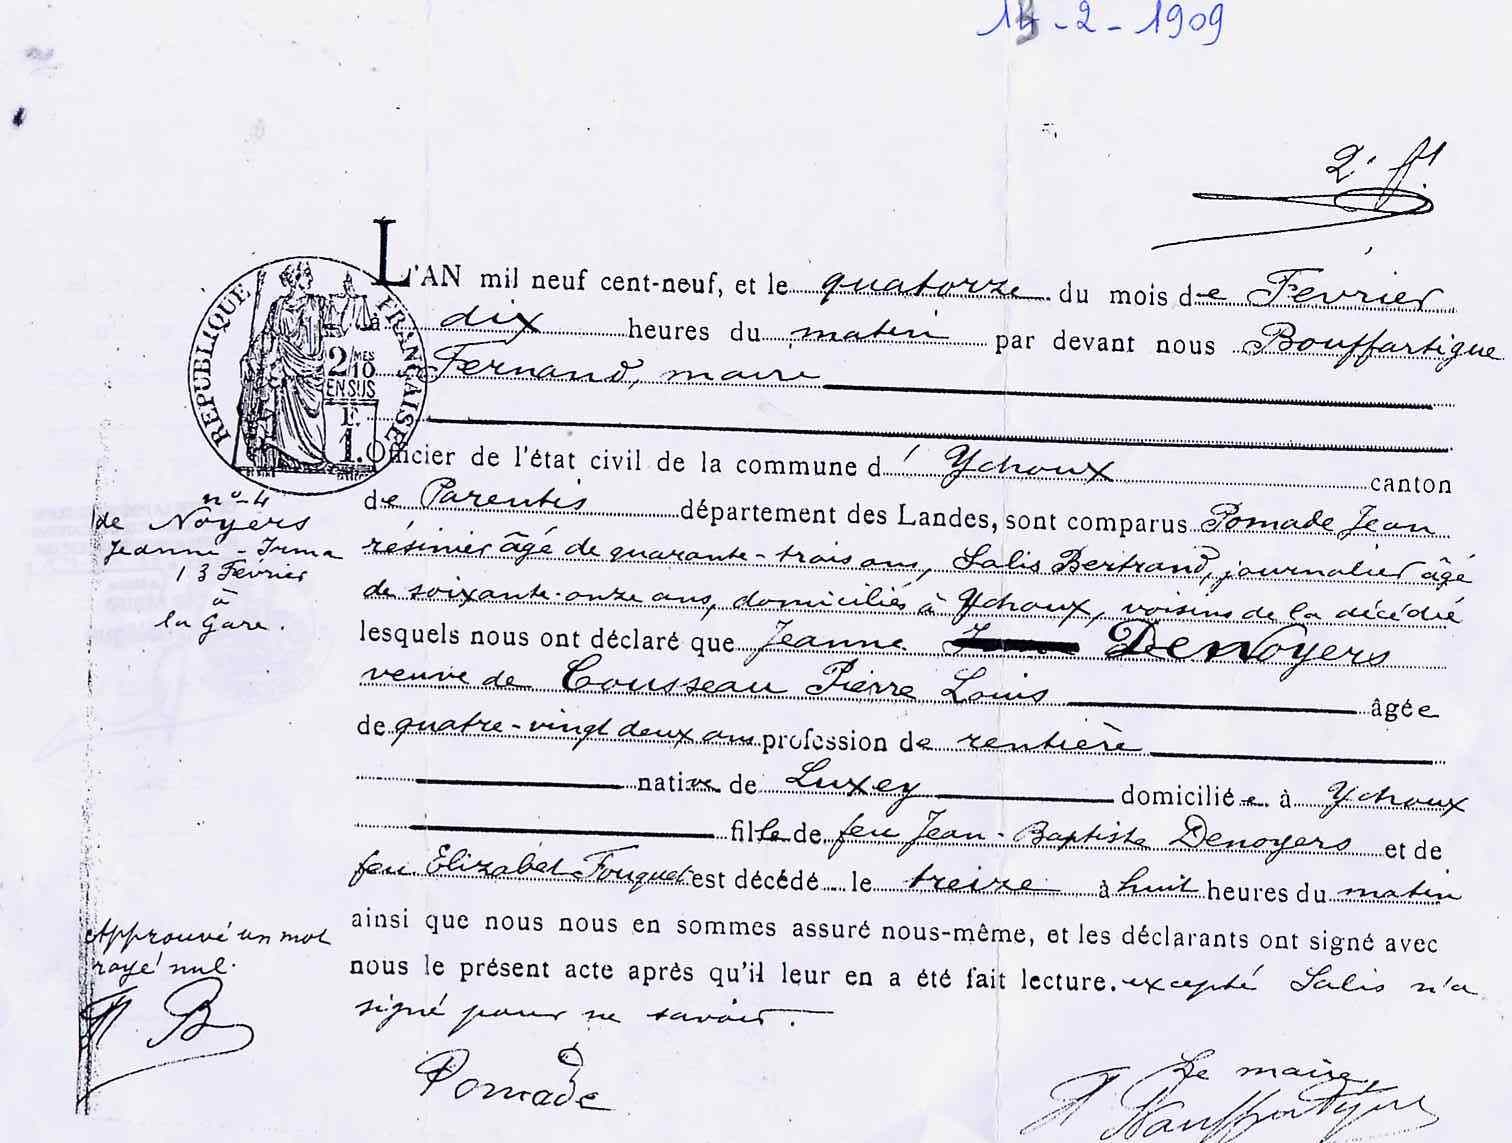 14-2-1909
2. ft
L'AN mil neuf cent-neuf, et le quatorze du mois de Février
à dix heures du matin par devant nous Bouffartigue
Fernand, maire
RÉPUBLIQUE FRANÇAISE
2/10 MES
EN SUS
F.
1.
Officier de l'état civil de la commune d' Ychoux canton
de Parentis département des Landes, sont comparus Pomade Jean
résinier âgé de quarante-trois ans, Salis Bertrand, journalier âgé
de soixante-onze ans, domiciliés à Ychoux, voisins de la décédée
lesquels nous ont déclaré que Jeanne DeNoyers
veuve de Cousseau Pierre Louis âgée
de quatre-vingt deux ans profession de rentière
native de Luxey domiciliée à Ychoux
fille de feu Jean-Baptiste Denoyers et de
feu Elizabet Fouquet est décédé le treize à huit heures du matin
ainsi que nous nous en sommes assuré nous-même, et les déclarants ont signé avec
nous le présent acte après qu'il leur en a été fait lecture. excepté Salis n'a
signé pour ne savoir.
Pomade
Le maire,
F Bouffartigue
n° 4
de Noyers
Jeanne-Irma
13 Février
à
la Gare.
Approuvé un mot
rayé nul.
F. B